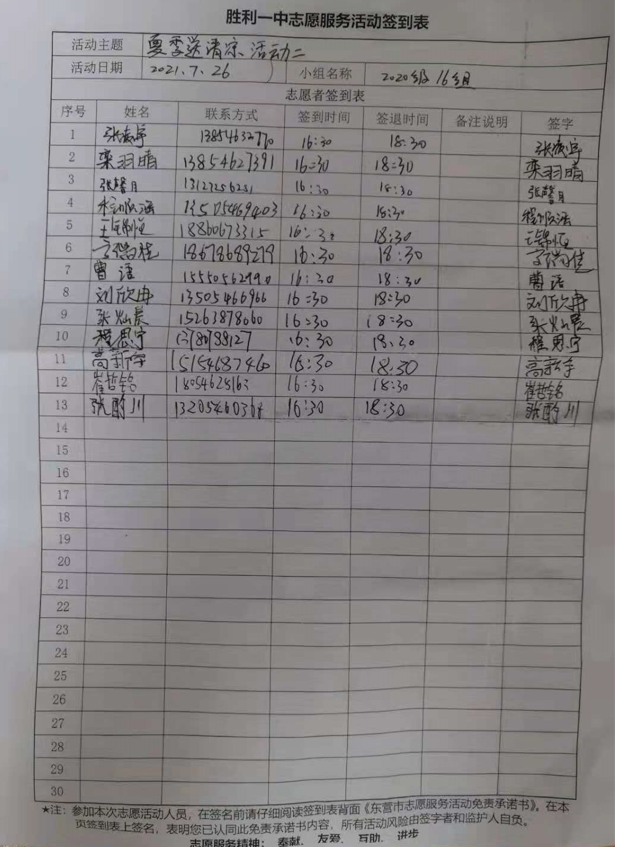 胜利一中志愿服务活动签到表
活动主题 夏季送清凉活动二
活动日期 2021.7.26 小组名称 2020级16组
志愿者签到表
序号 姓名 联系方式 签到时间 签退时间 备注说明 签字
1 16:30 18:30
2 栾羽晴 13854627391 16:30 18:30 栾羽晴
3 张馨月 16:30 18:30 张馨月
4 16:30 18:30
5 18860673315 16:30 18:30
6 18678689279 16:30 18:30
7 曹语 15550562990 16:30 18:30 曹语
8 刘欣冉 13505466966 16:30 18:30 刘欣冉
9 张灿晨 15263878660 16:30 18:30 张灿晨
10 16:30 18:30
11 高新宇 15154687460 16:30 18:30 高新宇
12 崔哲铭 16:30 18:30 崔哲铭
13 张酌川 16:30 18:30 张酌川
14
15
16
17
18
19
20
21
22
23
24
25
26
27
28
29
30
★注：参加本次志愿活动人员，在签名前请仔细阅读签到表背面《东营市志愿服务活动免责承诺书》。在本
页签到表上签名，表明您已认同此免责承诺书内容，所有活动风险由签字者和监护人自负。
志愿服务精神：奉献、友爱、互助、进步